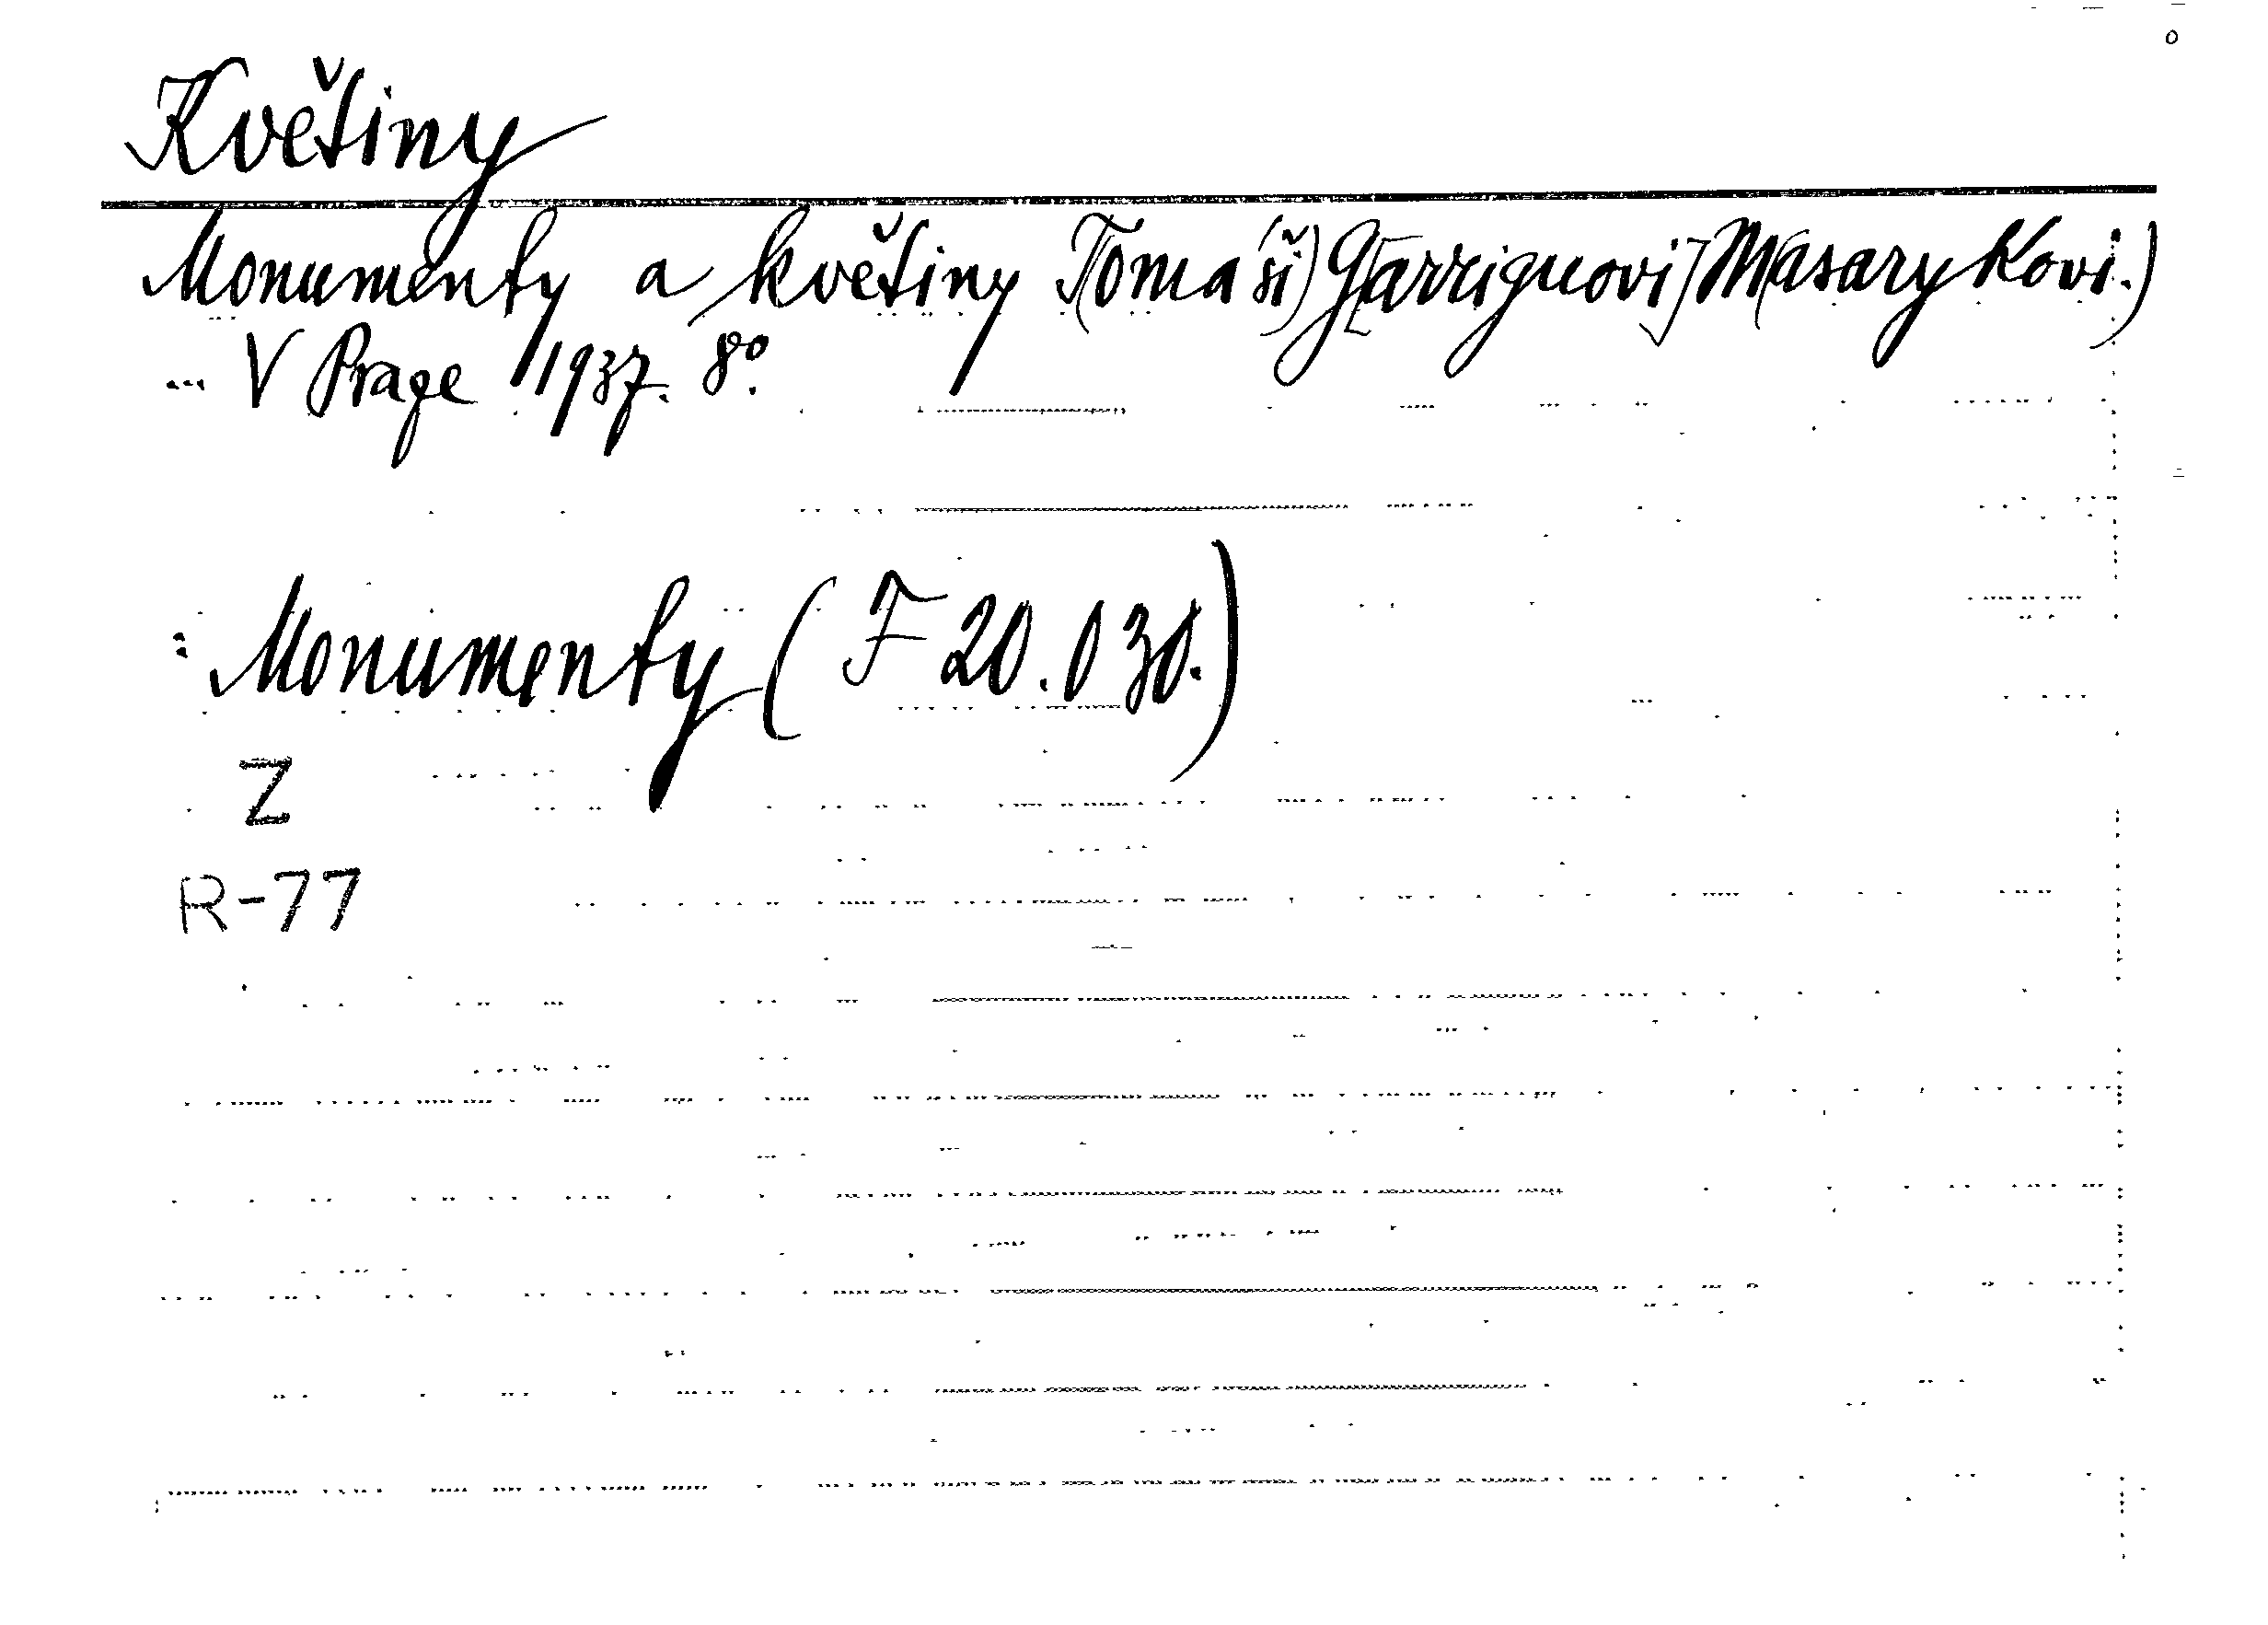 Květiny
Monumenty a květiny T(omáši) G[arriguovi] M(asarykovi.)
... V Praze 1937. 8°.
: Monumenty (F 20.030.)
Z
R-77